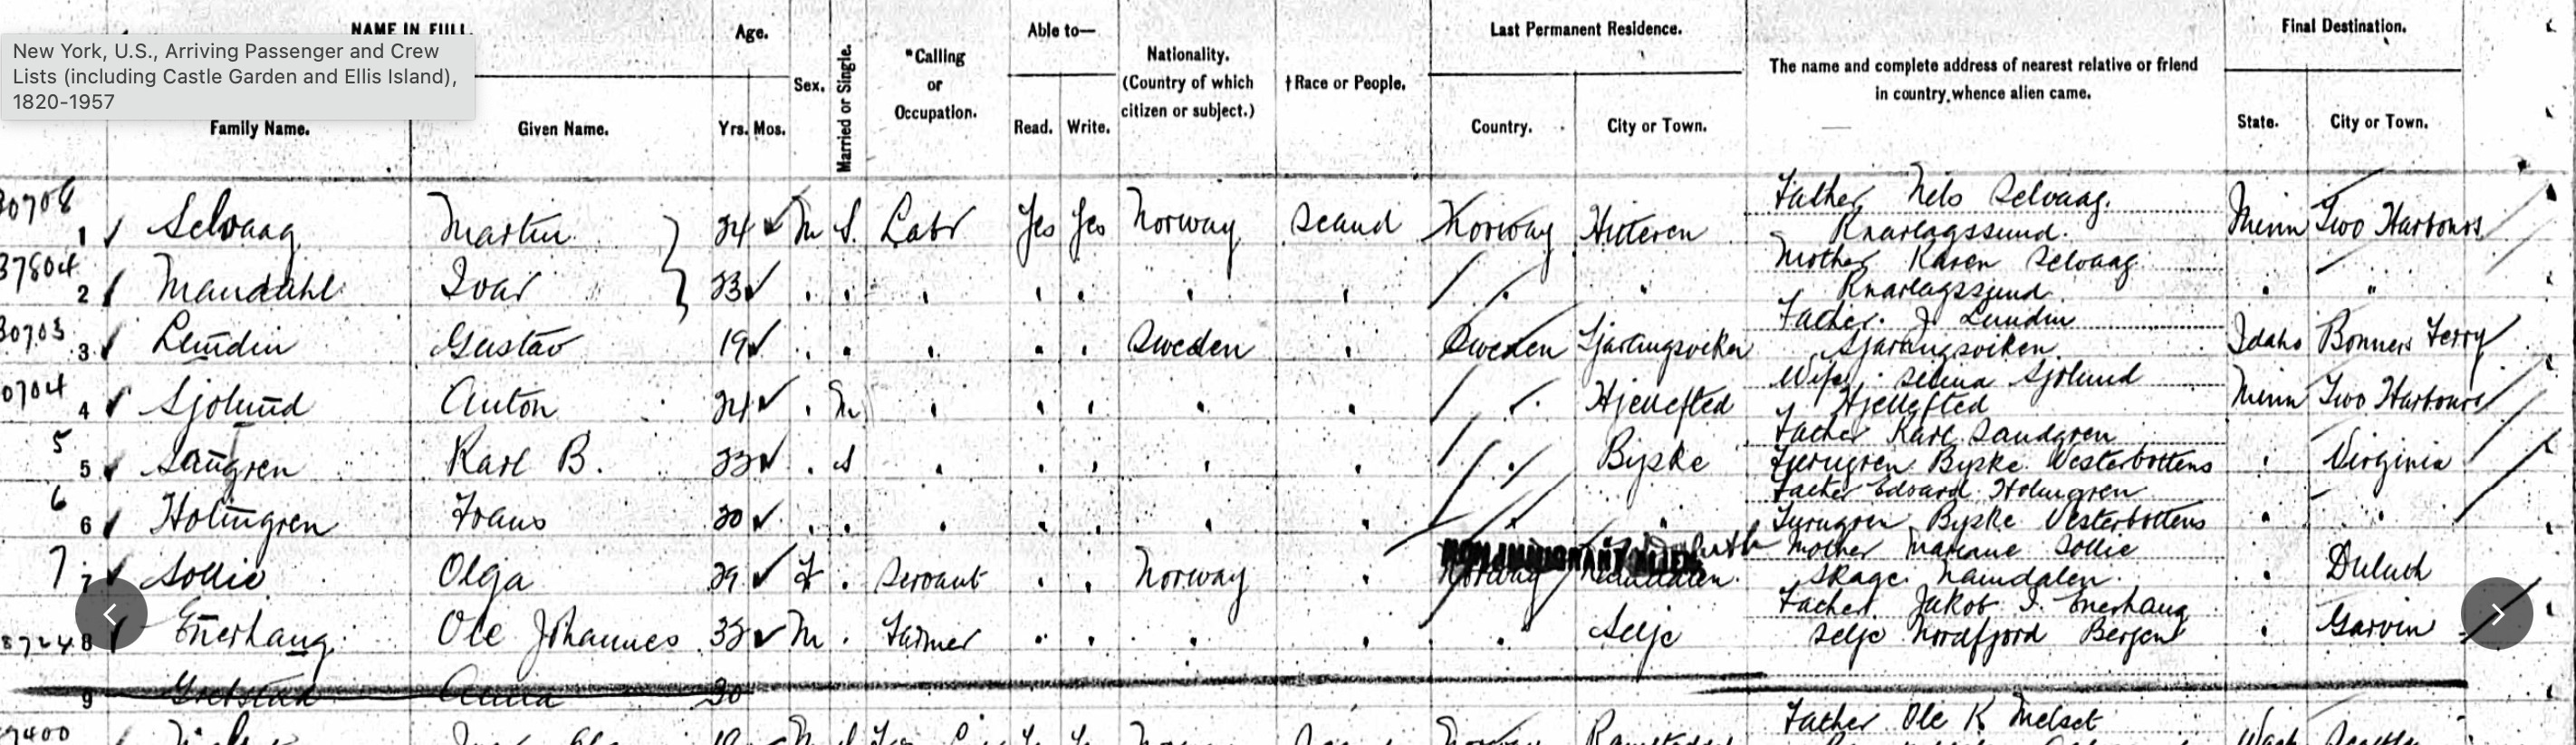 New York, U.S., Arriving Passenger and Crew
Lists (including Castle Garden and Ellis Island),
1820-1957
NAME IN FULL.
Family Name.
Given Name.
Age.
Yrs. Mos.
Sex.
Married or Single.
*Calling
or
Occupation.
Able to—
Read. Write.
Nationality.
(Country of which
citizen or subject.)
†Race or People.
Last Permanent Residence.
Country. City or Town.
The name and complete address of nearest relative or friend
in country whence alien came.
Final Destination.
State. City or Town.
30708
1 Selvaag Martin 24 M S. Labr Yes Yes Norway Scand Norway Hitteren Father Nels Selvaag. Minn Two Harbours
Knarlagssund.
37804
2 Mandahl Ivar 23 " " " " " " " " " Mother Karen Selvaag " "
Knarlagssund
30703
3 Lundin Gustav 19 " " " " " Sweden " Sweden Father J. Lundin Idaho Bonners Ferry
0704
4 Sjolund Anton 24 " M " " " " " " Wife Sjolund Minn Two Harbours
5
5 Sangren Karl B. " S " " " " " " Byske Father Karl Sandgren " Virginia
Byske Westerbottens
6
6 Holmgren Frans 20 " " " " " " " " " Father Edvard Holmgren " "
Byske Vesterbottens
7
7 Sollie Olga 29 F " Servant " " Norway " NON IMMIGRANT ALIEN Norway Namdalen Mother Mariane Sollie " Duluth
Skage Namdalen.
87248
8 Enerhaug Ole Johannes M " Farmer " " " " " Selje Father Jakob I. Enerhaug " Garvin
Selje Nordfjord Bergen
9 Anna 20
9400
Father Ole K Melset
Wash Seattle